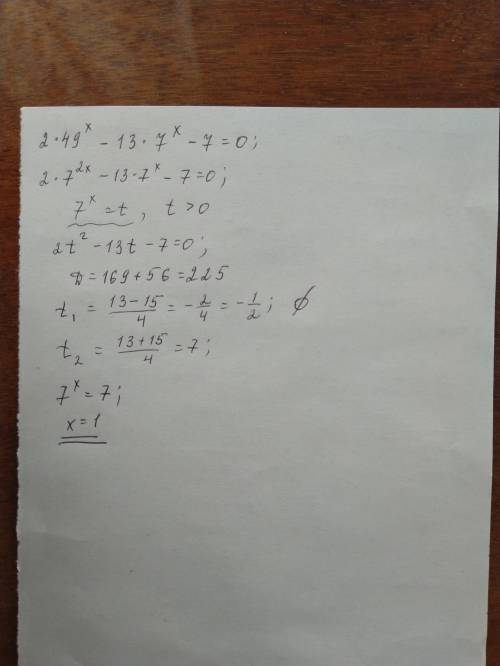 2·49^x − 13·7^x − 7 = 0;
2·7^{2x} − 13·7^x − 7 = 0;
7^x = t, t > 0
2t² − 13t − 7 = 0;
D = 169 + 56 = 225
t₁ = (13 − 15)/4 = −2/4 = −1/2; ∅
t₂ = (13 + 15)/4 = 7;
7^x = 7;
x = 1